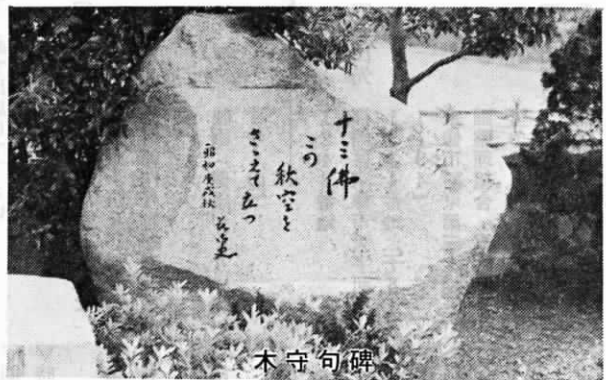 十三佛
この
秋空を
さゝえて立つ
昭和庚戌秋
木守句碑